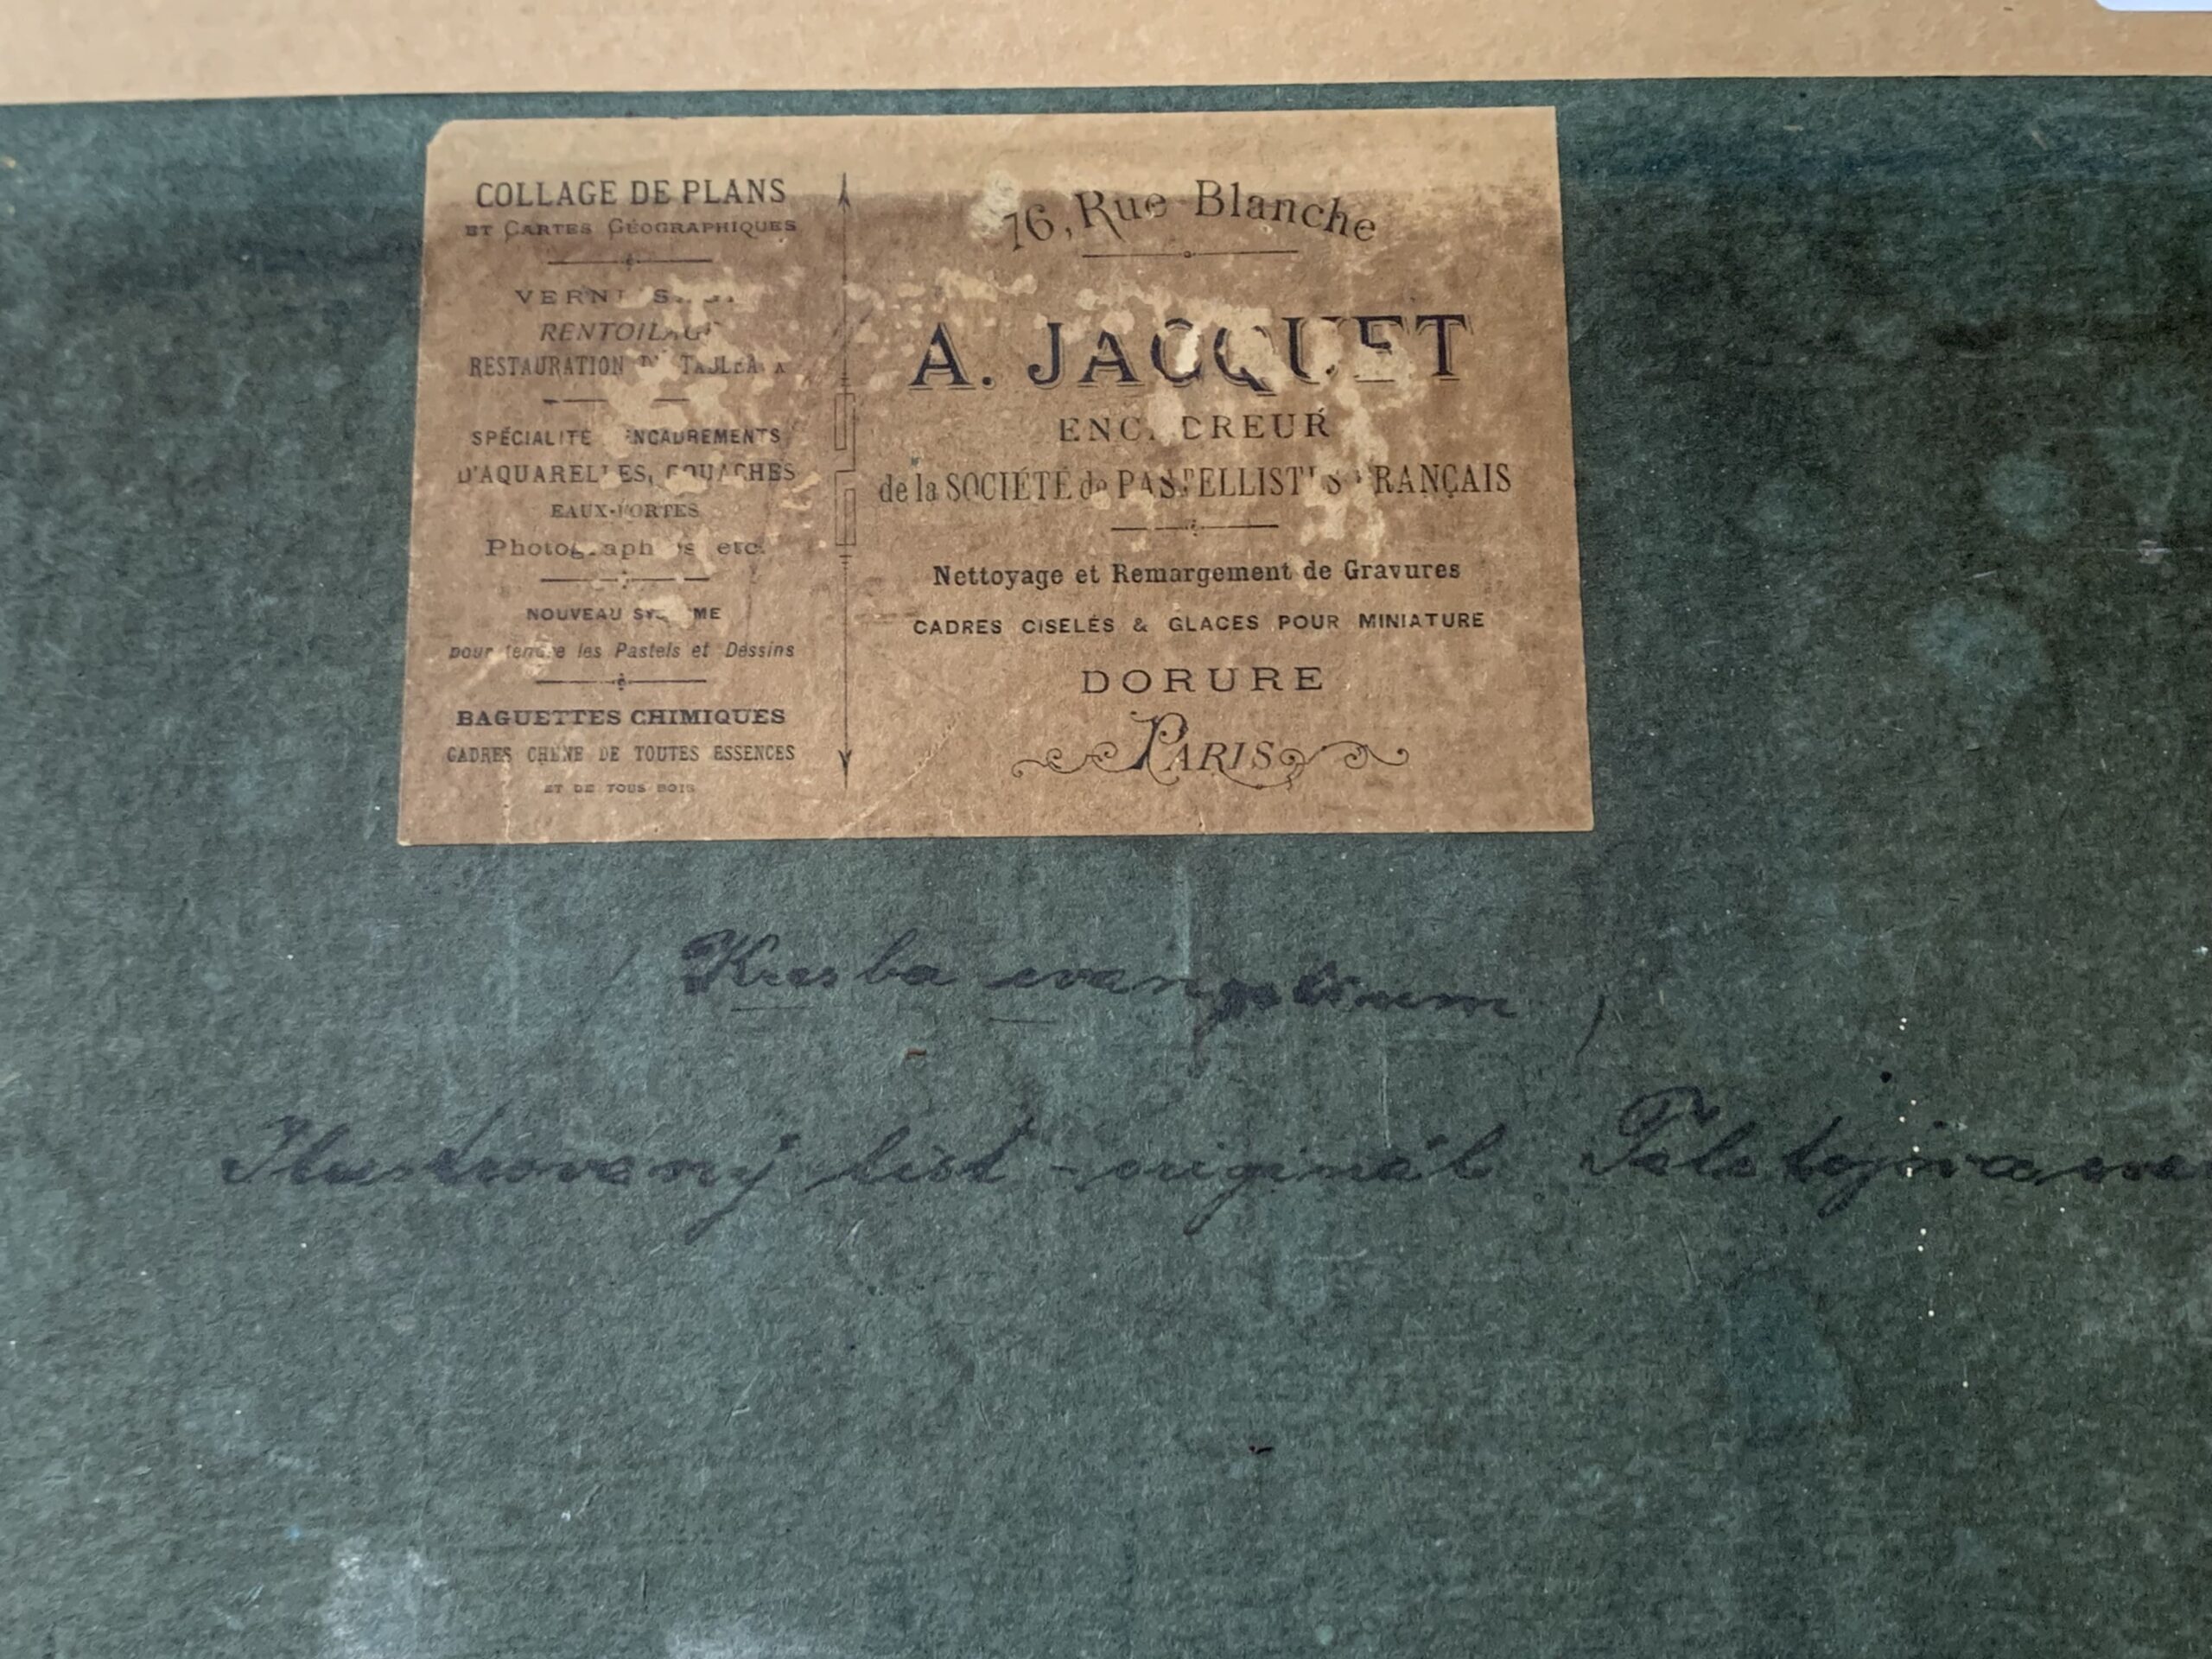 COLLAGE DE PLANS
ET CARTES GÉOGRAPHIQUES
VERNISSAGE
RENTOILAGE
RESTAURATION DE TABLEAUX
SPÉCIALITÉ ENCADREMENTS
D'AQUARELLES, GOUACHES
EAUX-FORTES
Photographies etc.
NOUVEAU SYSTÈME
pour tendre les Pastels et Dessins
BAGUETTES CHIMIQUES
CADRES CHÊNE DE TOUTES ESSENCES
ET DE TOUS BOIS
76, Rue Blanche
A. JACQUET
ENCADREUR
de la SOCIÉTÉ de PASTELLISTES FRANÇAIS
Nettoyage et Remargement de Gravures
CADRES CISELÉS & GLACES POUR MINIATURE
DORURE
PARIS
Kresba
Ilustrovaný list - originál